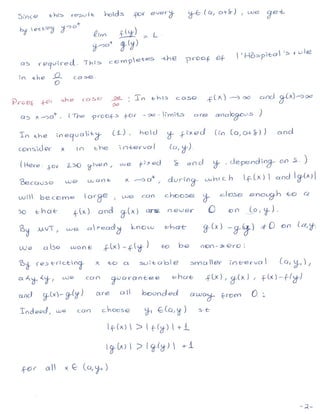 Since this result holds for every y ∈ (a, a+δ), we get
by letting y→a⁺
lim f(y)/g(y) = L
y→a⁺
as required. This completes the proof of l'Hôspital's rule
in the 0/0 case.
Proof for the case ∞/∞ : In this case f(x)→∞ and g(x)→∞
as x→a⁺. (The proofs for -∞-limits are analogous.)
In the inequality (1), hold y fixed (in (a, a+δ)) and
consider x in the interval (a,y).
(Here, for ε>0 given, we fixed δ and y, depending on ε.)
Because we want x→a⁺, during which |f(x)| and |g(x)|
will become large, we can choose y close enough to a
so that f(x) and g(x) are never 0 on (a,y).
By MVT, we already know that g(x)-g(y) ≠ 0 on (a,y).
we also want f(x)-f(y) to be non-zero:
By restricting x to a suitable smaller interval (a,y₁),
a<y₁<y, we can guarantee that f(x), g(x), f(x)-f(y)
and g(x)-g(y) are all bounded away from 0:
Indeed, we can choose y₁ ∈(a,y) s.t
|f(x)| > |f(y)| + 1
|g(x)| > |g(y)| + 1
for all x ∈ (a,y₁)
-2-